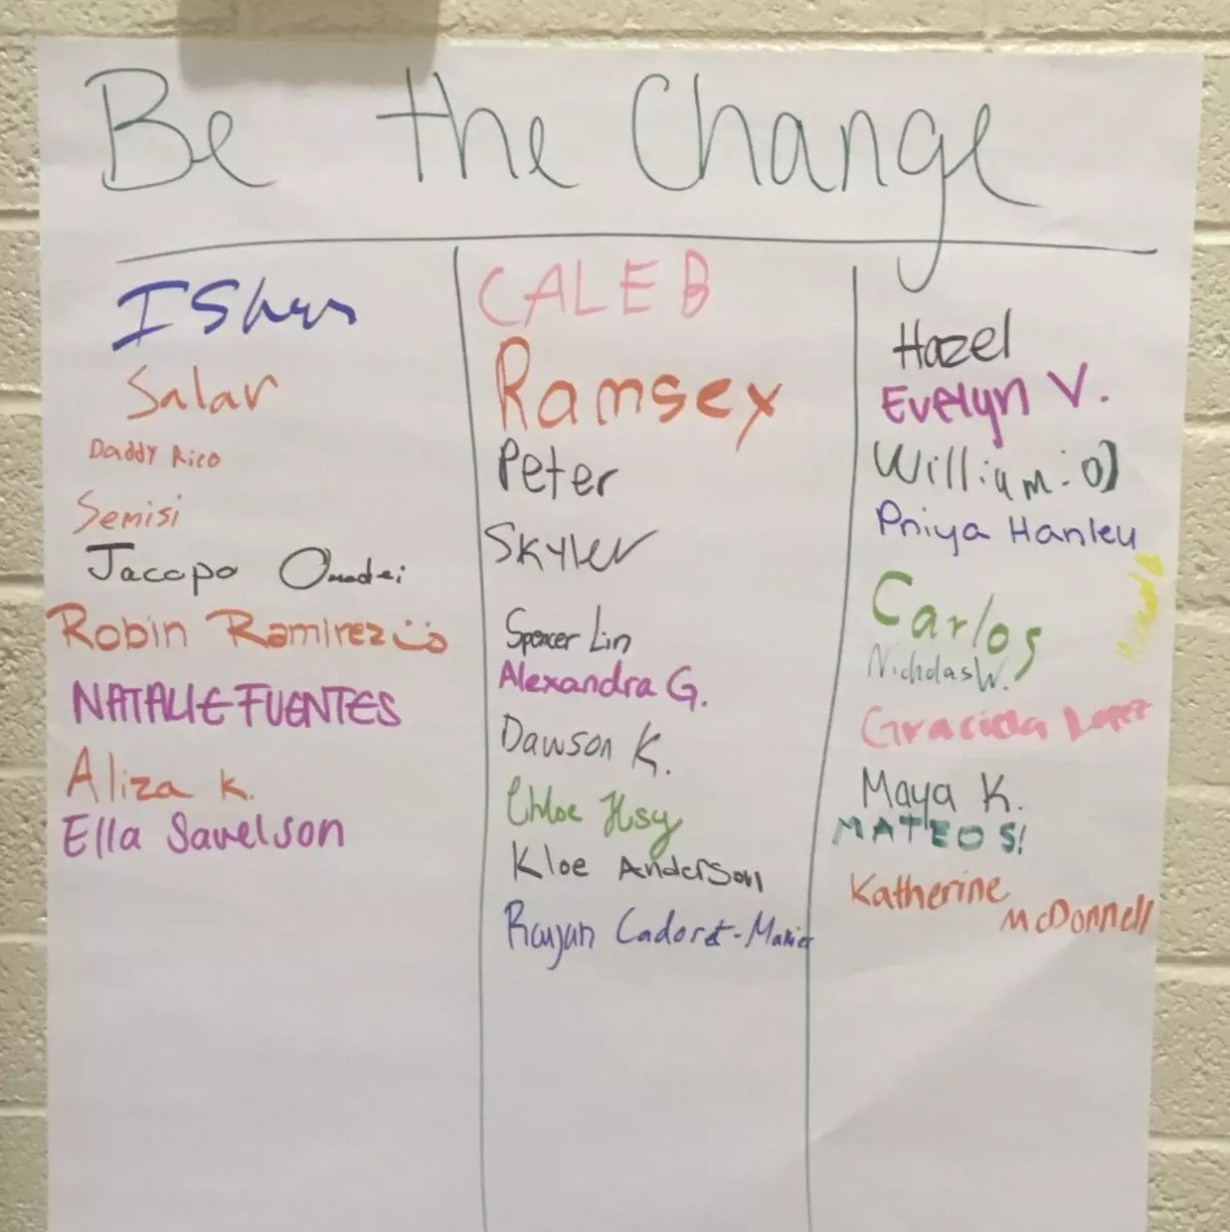 Be the Change
Salar
Daddy Rico
Semisi
Jacopo
Robin Ramirez
NATALIE FUENTES
Aliza K.
Ella Savelson
CALEB
Ramsey
Peter
Skyler
Spencer Lin
Alexandra G.
Dawson K.
Chloe Hsy
Kloe Anderson
Rayan Cadoret-
Hazel
Evelyn V.
William :0)
Priya Hanley
Carlos
Nicholas W.
Graciela Lopez
Maya K.
MATEO S!
Katherine
McDonnell